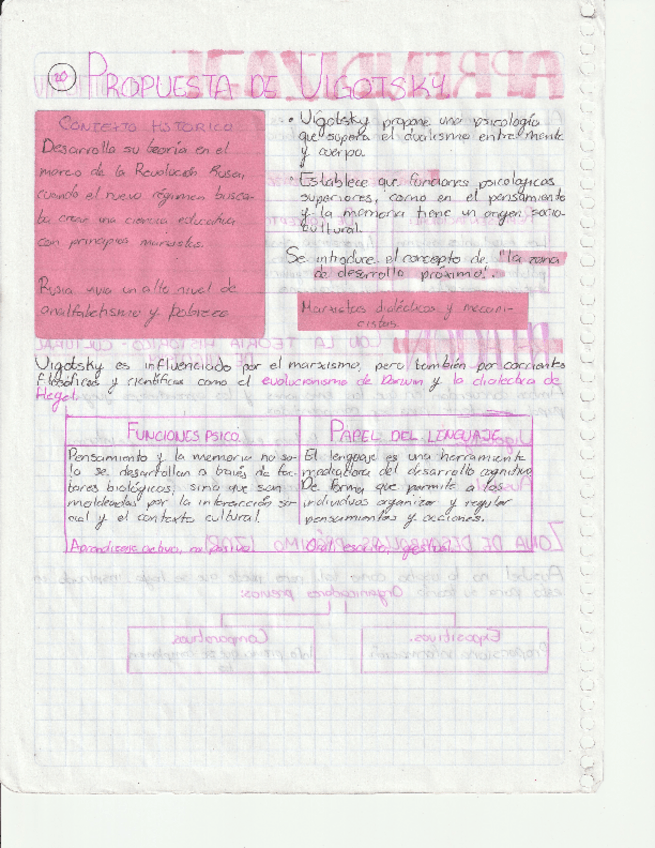 20
PROPUESTA DE VIGOTSKY
CONTEXTO HISTORICO
Desarrollo su teoría en el
marco de la Revolución Rusa,
cuando el nuevo régimen busca-
ba crear una ciencia educativa
con principios marxistas.
Rusia vivia un alto nivel de
analfabetismo y pobreza
• Vigotsky propone una psicología
que supera el dualismo entre mente
y cuerpo.
• Establece que funciones psicologicas
superiores, como en el pensamiento
y la memoria tiene un origen socio-
cultural.
Se introduce el concepto de "la zona
de desarrollo próximo".
Marxistas dialécticos y mecani-
cistas.
Vigotsky es influenciado por el marxismo, pero también por corrientes
filosóficas y científicas como el evolucionismo de Darwin y la dialectica de
Hegel
FUNCIONES PSICO.
Pensamiento y la memoria no so-
lo se desarrollan a través de fac-
tores biológicos, sino que son
moldeadas por la interacción so-
cial y el contexto cultural.
Aprendizaje activo, no pasivo
PAPEL DEL LENGUAJE
El lenguaje es una herramienta
mediadora del desarrollo cognitivo
De forma que permite a los
individuos organizar y regular
pensamientos y acciones.
Oral, escrito, gestual